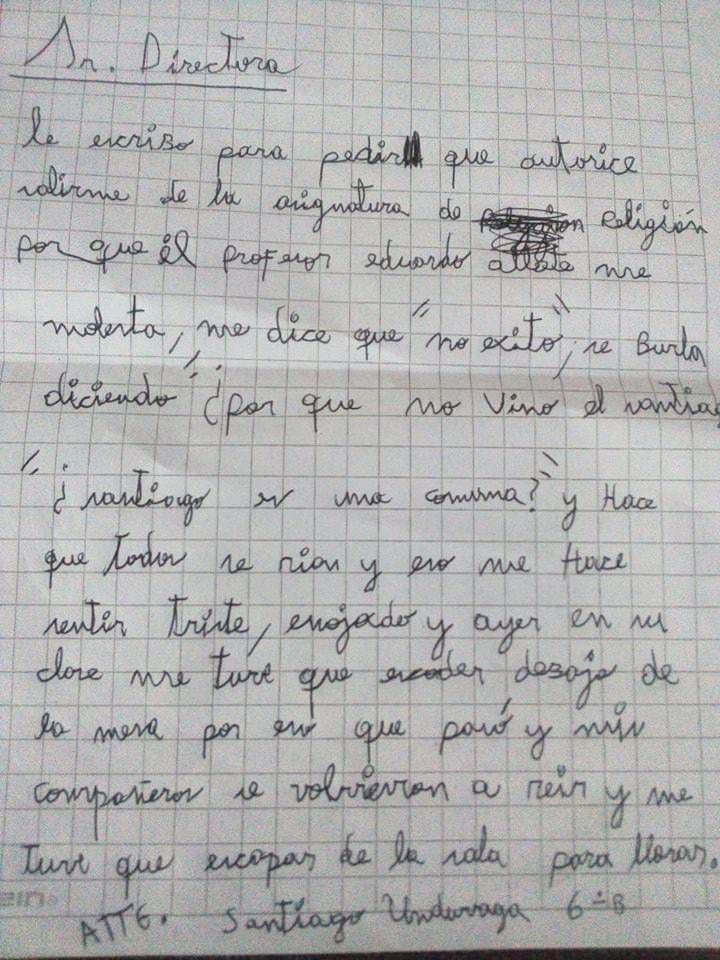 Sr. Directora
le escribo para pedir que autorice
salirme de la asignatura de Religión
por que él profesor eduardo me
molesta, me dice que "no exito", se Burla
diciendo "¿por que no Vino el santiag
"¿santiago es una comuna?" y Hace
que todos se rian y eso me Hace
sentir triste, enojado y ayer en su
clase me tuve que esconder desajo de
la mesa por eso que pasó y mis
compañeros se volvieron a reir y me
tuve que escapar de la sala para llorar.
ATTE. Santiago Undurraga 6-B